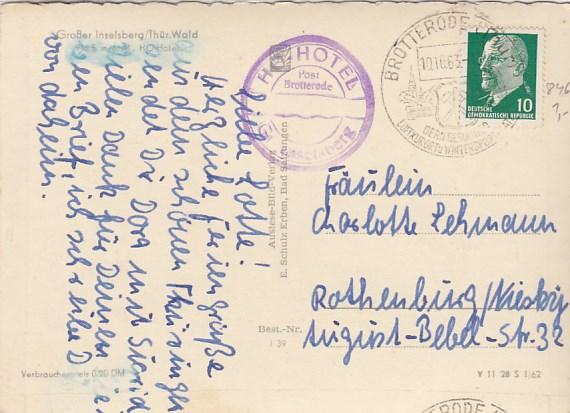 Großer Inselsberg/Thür. Wald
HO-Hotel
Liebe Lotte!
Herzliche Feriengrüße
aus dem schönen Thüringen
sendet Dir Dora mit Sigrid
Vielen Dank für Deinen
Brief! ich schreibe
von daheim.
Auslese-Bild-Verlag
E. Schulz Erben, Bad Salzungen
HO HOTEL
Post
Brotterode
Gr. Inselsberg
BROTTERODE
10.10.63
LUFTKURORT u. WINTERSPORT
10
DEUTSCHE
DEMOKRATISCHE REPUBLIK
Fräulein
Charlotte Lehmann
Rothenburg/Niesky
August-Bebel-Str. 32
Best.-Nr.
I 39
Verbraucherpreis 0,20 DM
V 11 28 S 1/62